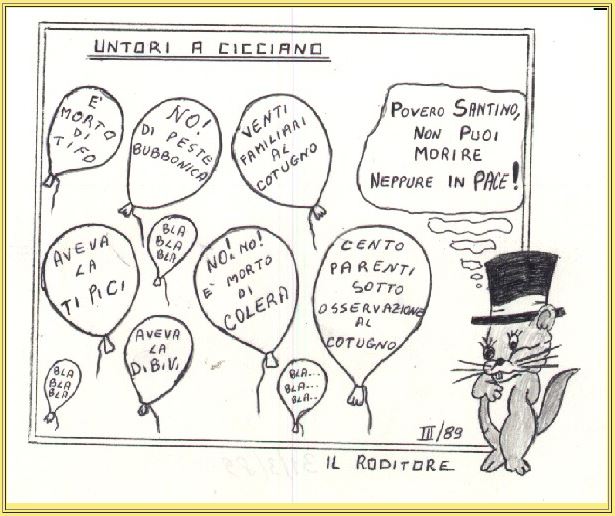 UNTORI A CICCIANO
E'
MORTO
DI
TIFO
NO!
DI PESTE
BUBBONICA
VENTI
FAMILIARI
AL
COTUGNO
POVERO SANTINO,
NON PUOI
MORIRE
NEPPURE IN PACE!
AVEVA
LA
TI PI CI
BLA
BLA
BLA
NO! NO!
E' MORTO
DI
COLERA
CENTO
PARENTI
SOTTO
OSSERVAZIONE
AL
COTUGNO
AVEVA
LA
DIBIVI
BLA
BLA
BLA
BLA...
BLA...
BLA..
III/89
IL RODITORE